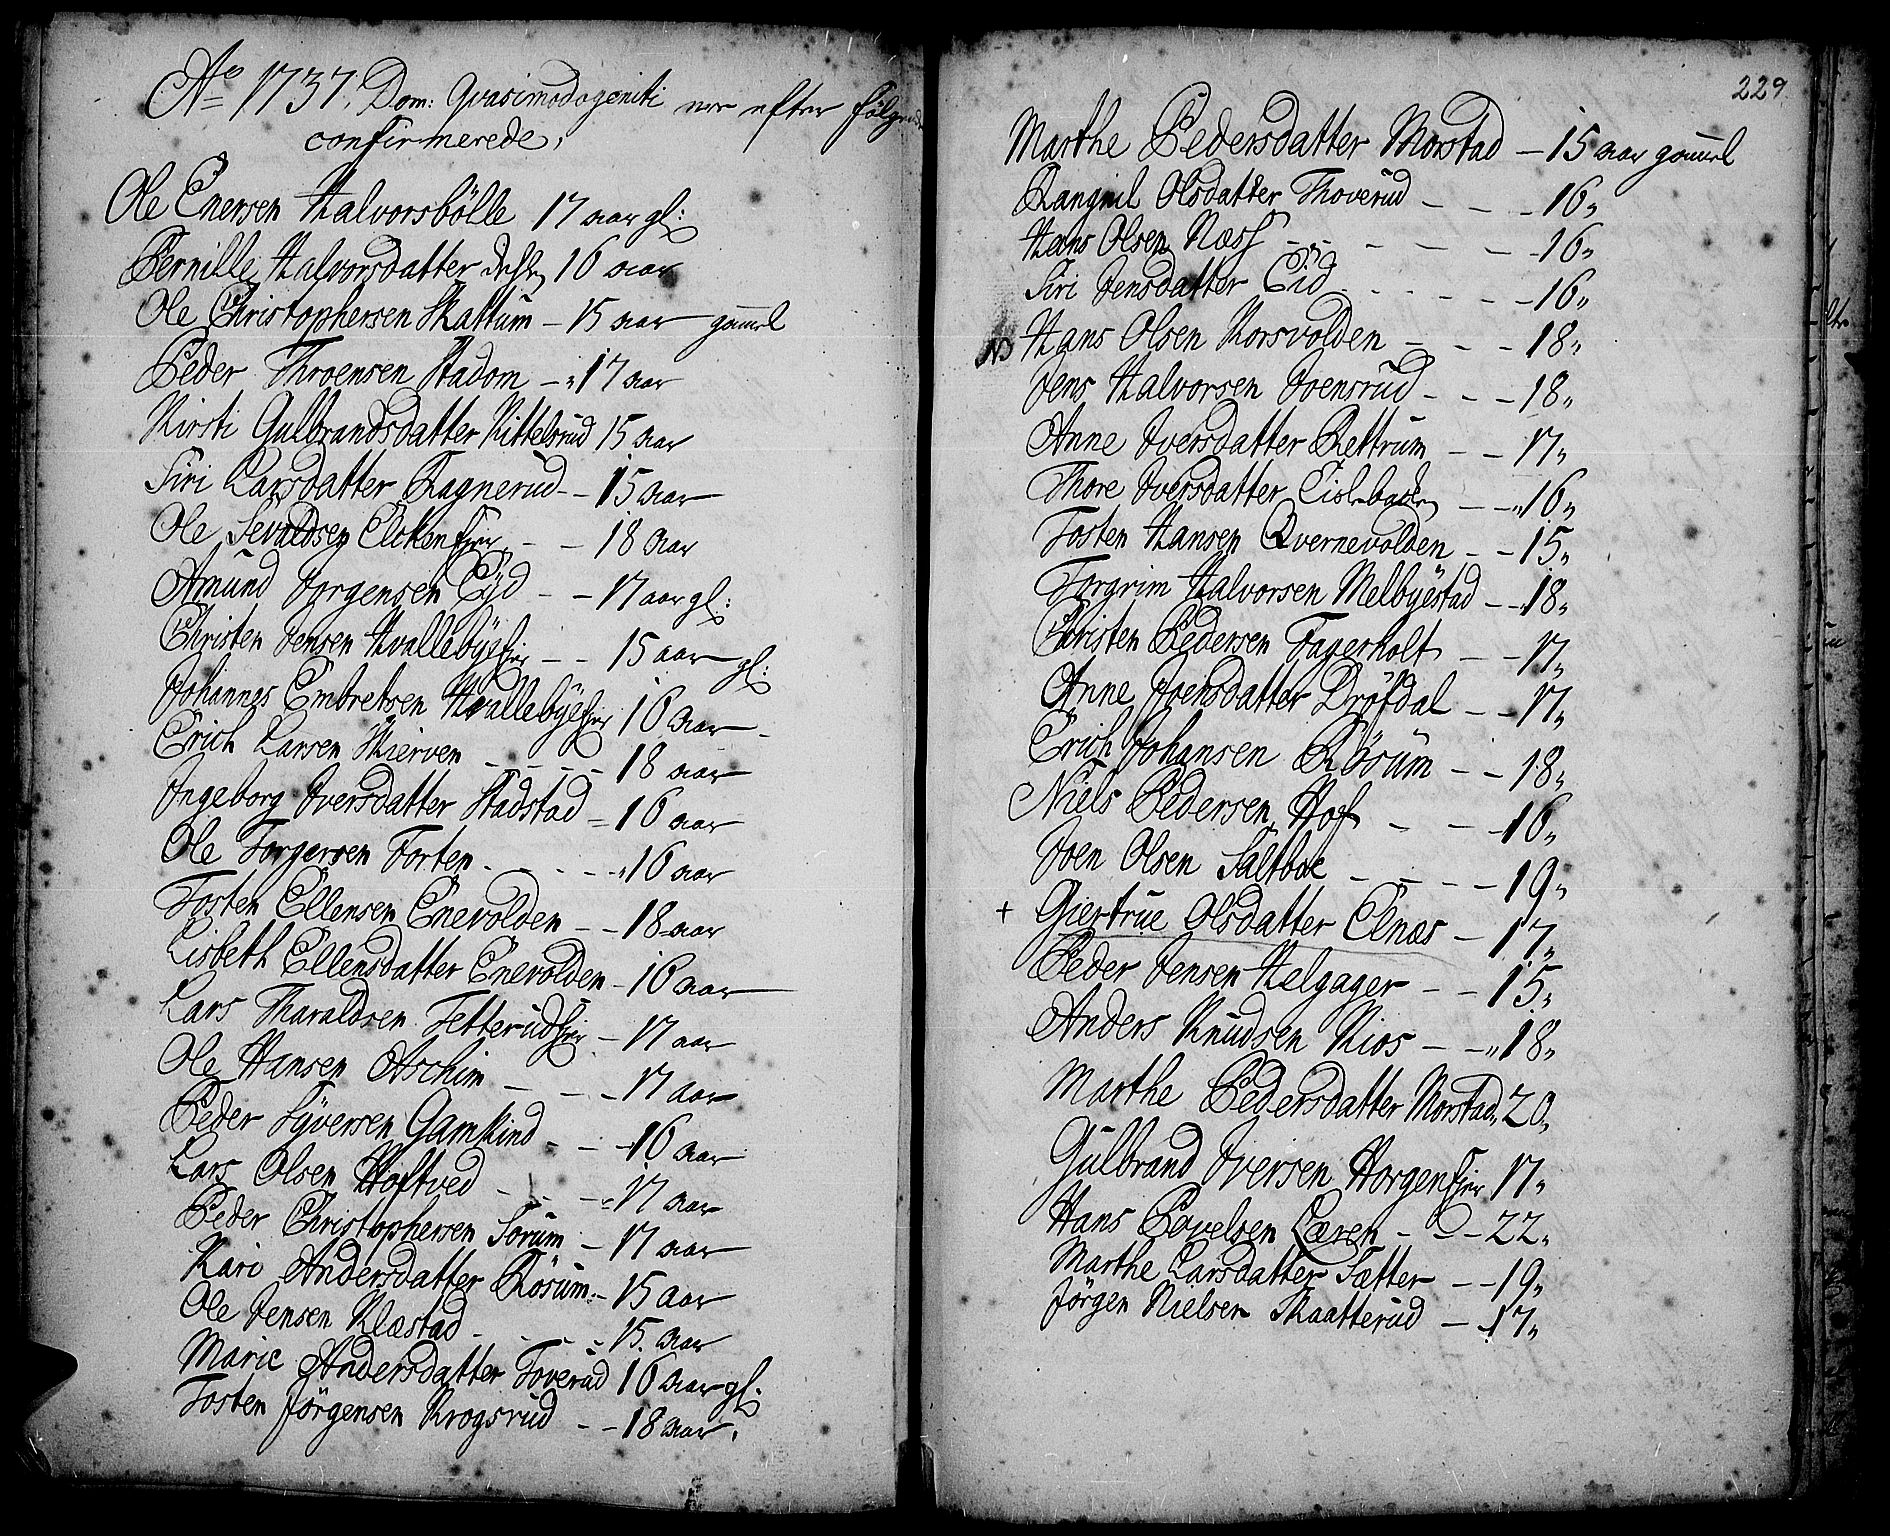 Aº 1737. Dom: Qvasimodogeniti ere efter følgende
confirmerede,
Ole Enersen Halvorsbölle 17 aar gl:
Pernille Halvorsdatter 16 aar
Ole Christophersen Skattum – 15 aar gammel
Peder Throensen Hadom – 17 aar
Kirsti Gulbrandsdatter Kittelsrud 15 aar
Siri Larsdatter Ragnerud – 15 aar
Ole Sevaldsen – 18 aar
Amund Jørgensen Eÿd – 17 aar gl:
Christen Jensen Hvallebÿeier – 15 aar gl:
Johannes Embretsen Hvallebÿeier 16 aar
Erich Larsen Skierven – 18 aar
Ingeborg Iversdatter Stadstad – 16 aar
Ole Torgersen Forten – 16 aar
Tosten Ellensen Enevolden – 18 aar
Lisbeth Ellensdatter Enevolden – 16 aar
Lars Tharaldsen Tetterudeier – 17 aar
Ole Hansen Aschim – 17 aar
Peder Syversen Gamkind – 16 aar
Lars Olsen Hoftved – 17 aar
Peder Christophersen Sørum – 17 aar
Kari Andersdatter Røsum – 15 aar
Ole Jensen Klæstad – 15. aar
Marie Andersdatter Toverud 16 aar gl:
Tosten Jørgensen Krogsrud – 18 aar.
229
Marthe Pedersdatter Morstad – 15 aar gammel
Rangnil Olsdatter Thoverud – 16,
Hans Olsen Næss – 16,
Siri Jensdatter Eid – 16,
NB Hans Olsen Korsvolden – 18,
Jens Halvorsen Joensrud – 18,
Anne Iversdatter Rettrum – 17,
Thore Iversdatter – 16,
Tosten Hansen Qvernevolden – 15,
Torgrim Halvorsen Melbyestad – 18,
Christen Pedersen Fagerholt – 17,
Anne Joensdatter Drøfdal – 17,
Erich Johansen Røsum – 18,
Niels Pedersen Hof – 16,
Joen Olsen Saltboe – 19,
+ Giertrue Olsdatter Elnæs – 17,
Peder Jensen Helgager – 15,
Anders Knudsen Kios – 18,
Marthe Pedersdatter Morstad 20,
Gulbrand Iversen Horgeneier 17,
Hans Povelsen Læren – 22,
Marthe Larsdatter Sætter – 19,
Jörgen Nielsen Skaatterud – 17,